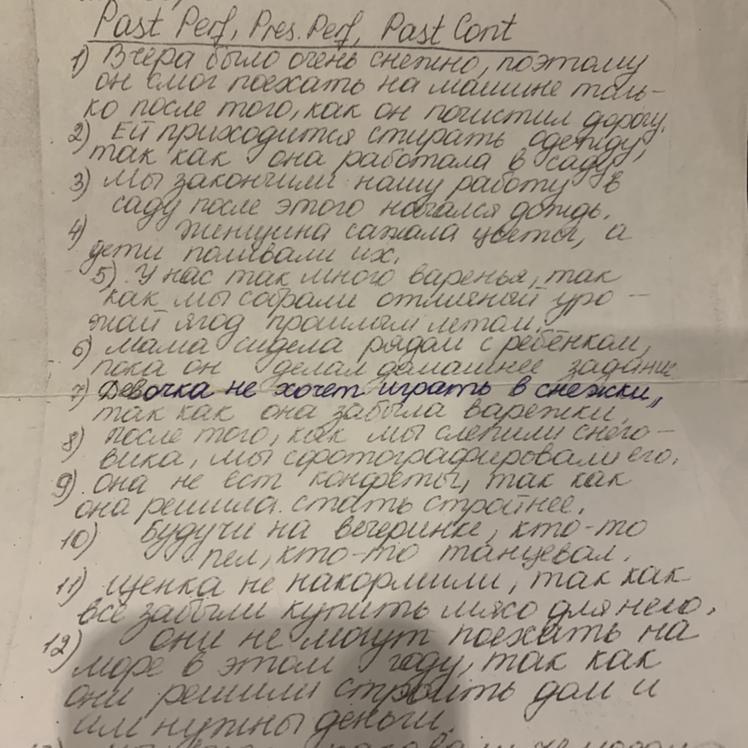 Past Perf, Pres. Perf, Past Cont
1) Вчера было очень снежно, поэтому
он смог поехать на машине толь-
ко после того, как он почистил дорогу.
2) Ей приходится стирать одежду,
так как она работала в саду.
3) Мы закончили нашу работу в
саду после этого начался дождь.
4) Женщина сажала цветы, а
дети поливали их.
5) У нас так много варенья, так
как мы собрали отличный уро-
жай ягод прошлым летом.
6) Мама сидела рядом с ребёнком,
пока он делал домашнее задание
7) Девочка не хочет играть в снежки,
так как она забыла варежки.
8) После того, как мы слепили снего-
вика, мы сфотографировали его.
9) Она не ест конфеты, так как
она решила стать стройнее.
10) Будучи на вечеринке, кто-то
пел, кто-то танцевал.
11) Щенка не накормили, так как
все забыли купить мясо для него.
12) Они не могут поехать на
море в этом году, так как
они решили строить дом и
им нужны деньги.